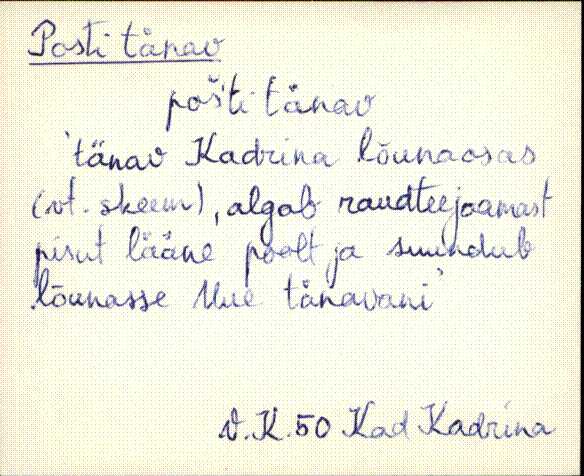 Posti tänav
poš'ti tänav
'tänav Kadrina lõunaosas
(vt. skeem), algab raudteejaamast
pisut lääne poolt ja suundub
lõunasse Uue tänavani'
V.K. 50 Kad Kadrina